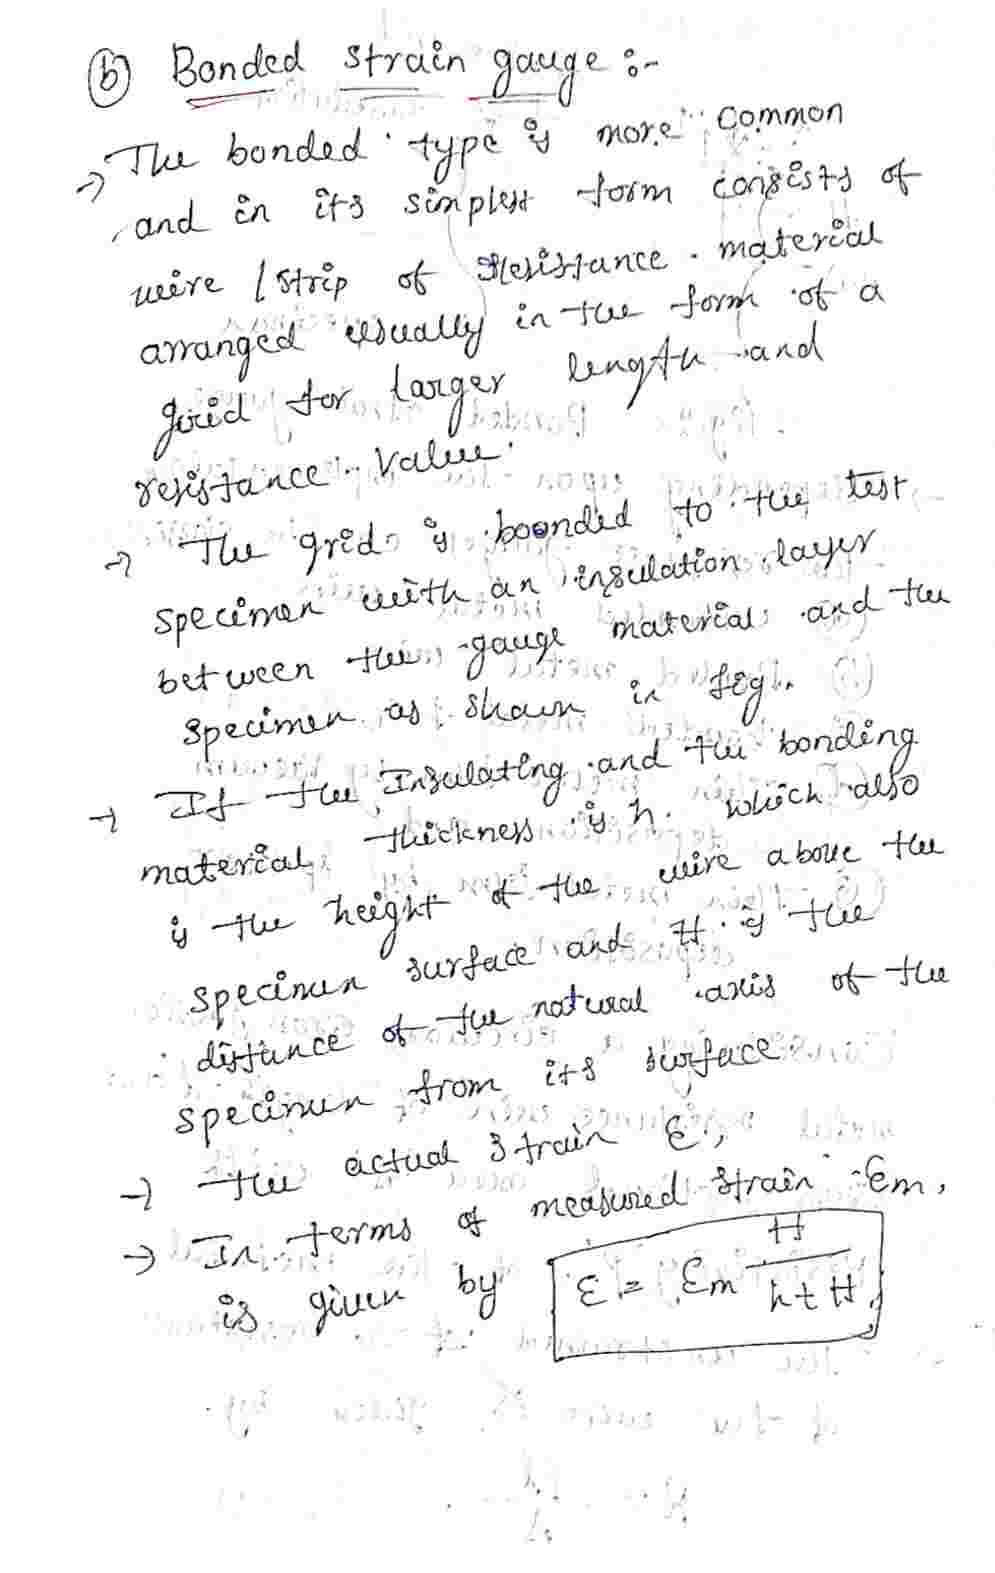 (b) Bonded strain gauge :-
→ The bonded type is more common
and in its simplest form consists of
wire / strip of resistance material
arranged usually in the form of a
grid for larger length and
resistance value.
→ The grid is boonded to the test
specimen with an insulation layer
between the gauge material and the
specimen as shawn in fig.
→ If the Insulating and the bonding
material thickness is h. which also
is the height of the wire above the
specimen surface and H is the
distance of the natural axis of the
specimen from its surface.
→ the actual strain ε,
→ In terms of measured strain εm,
is given by ε = εm H / h+H